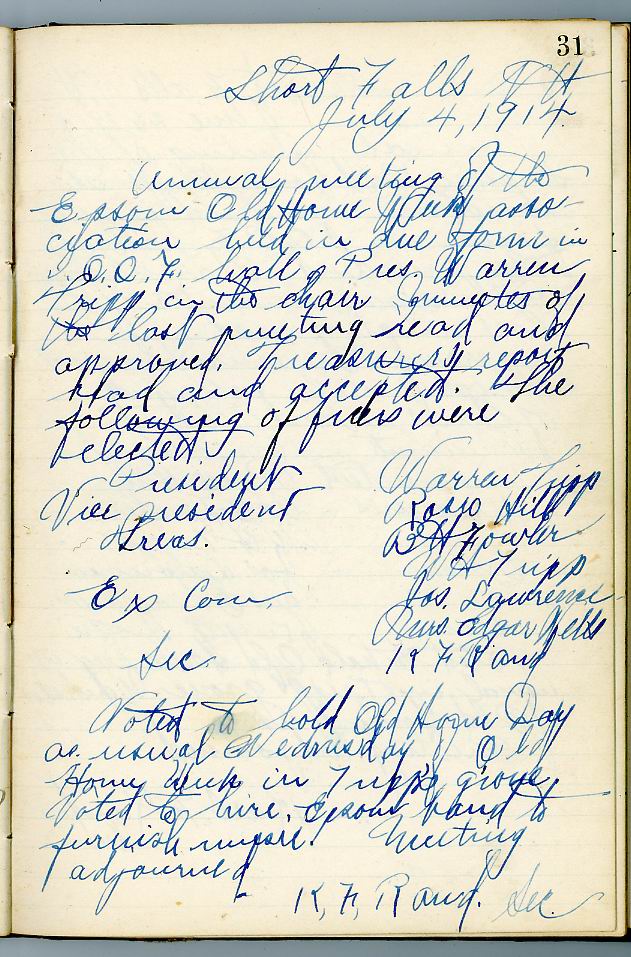 31
Short Falls N H
July 4, 1914.
Annual meeting of the
Epsom Old Home Week asso
ciation held in due form in
I. O. O. F. hall, Pres. Warren
Tripp in the chair minutes of
the last meeting read and
approved. Treasurers report
read and accepted. The
following officers were
elected
President Warren Tripp
Vice president Hill
Treas. B H Fowler
W H Tripp
Ex Com. Jos. Lawrence
Mrs. Edgar Wells
Sec. K F Rand
Voted to hold Old Home Day
as usual Wednesday of Old
Home Week in Tripps grove,
Voted to hire Epsom band to
furnish music. Meeting
adjourned
K, F, Rand. Sec.